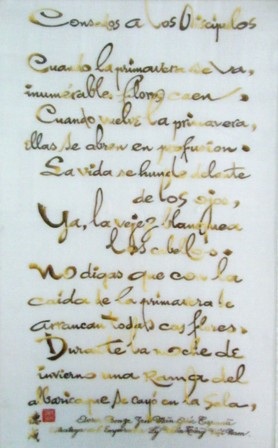 Consejos a los Discípulos
Cuando la primavera se va,
inumerables flores caen.
Cuando vuelve la primavera,
ellas se abren en profusion.
La vida se hunde delante
de los ojos,
Ya, la vejez blanquea
los cabellos.
No digas que con la
caida de la primavera se
arrancan todas las flores.
Durante la noche de
invierno una Rama del
albaricoque se cayó en la Sala,